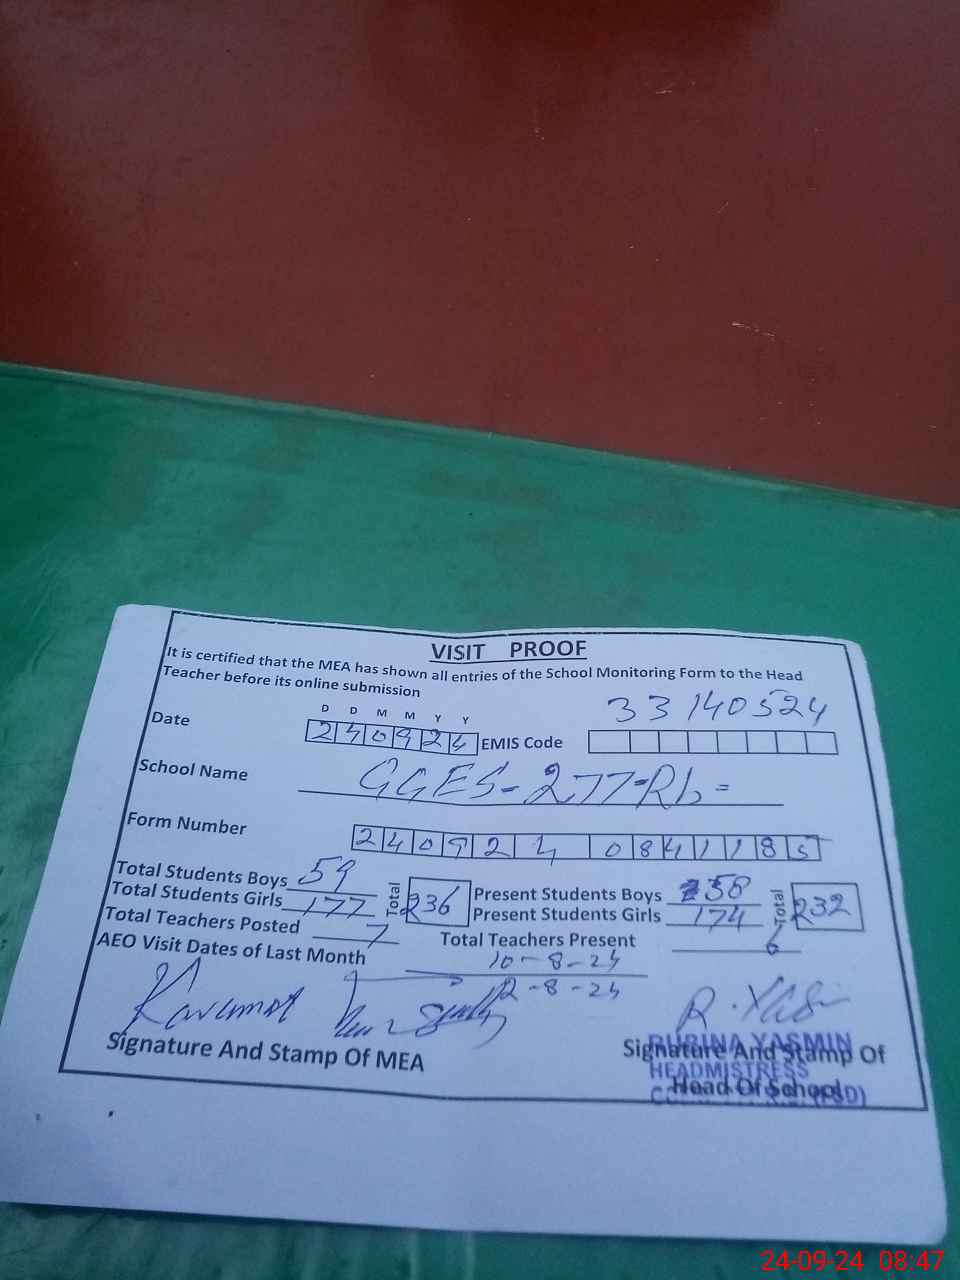 VISIT PROOF
It is certified that the MEA has shown all entries of the School Monitoring Form to the Head
Teacher before its online submission
D D M M Y Y
33140524
Date 240924 EMIS Code
School Name GGES-277-Rb=
Form Number 2409240841185
Total Students Boys 59
Total Students Girls 177 Total 236
Present Students Boys 58
Present Students Girls 174 Total 232
Total Teachers Posted 7 Total Teachers Present 6
AEO Visit Dates of Last Month 10-8-24
12-8-24
Karamat
R. Yasmin
Signature And Stamp Of MEA
Signature And Stamp Of
Head Of School
RUBINA YASMIN
HEADMISTRESS
24-09-24 08:47